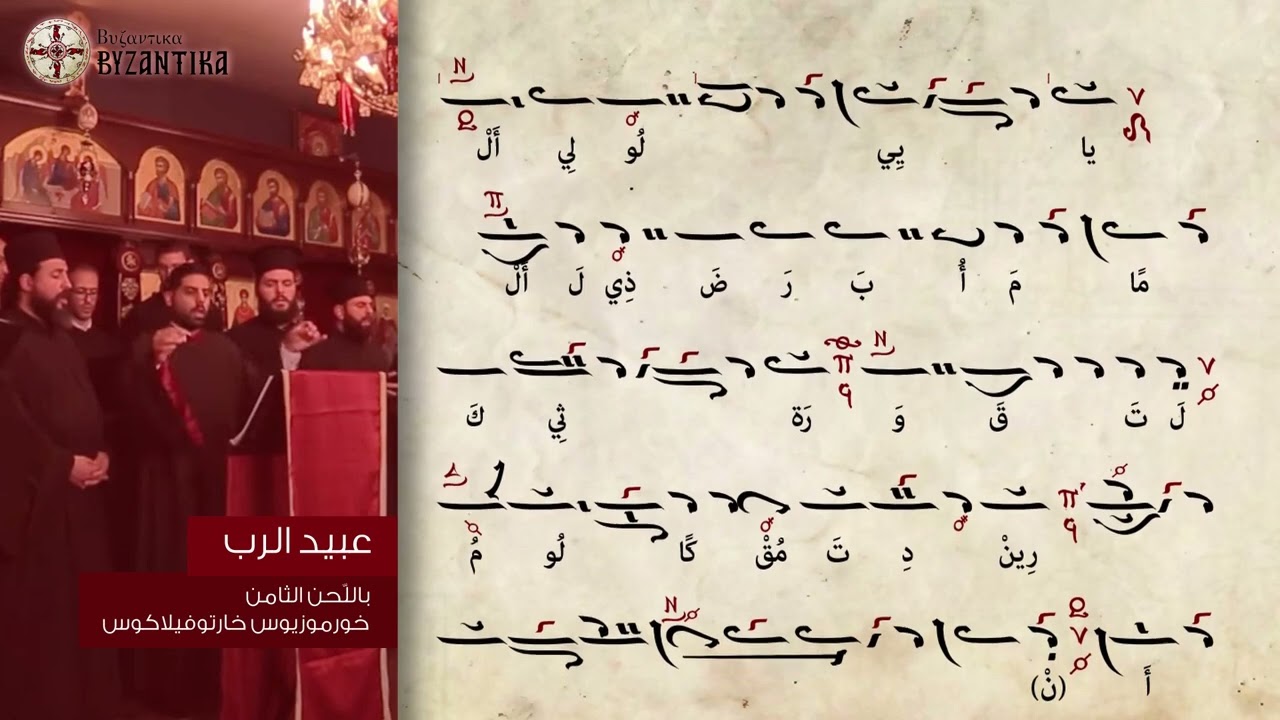 Βυζαντικα
BYZANTIKA
أَلْ لِي لُو يِي يا
أَلْ لَ ذِي ضَ رَ بَ أُ مَ مًا
كَ ثِي رَة وَ قَ تَ لَ
مُ لُو كًا مُقْ تَ دِ رِينْ
(نْ) أَ
عبيد الرب
باللّحن الثامن
خورموزيوس خارتوفيلاكوس